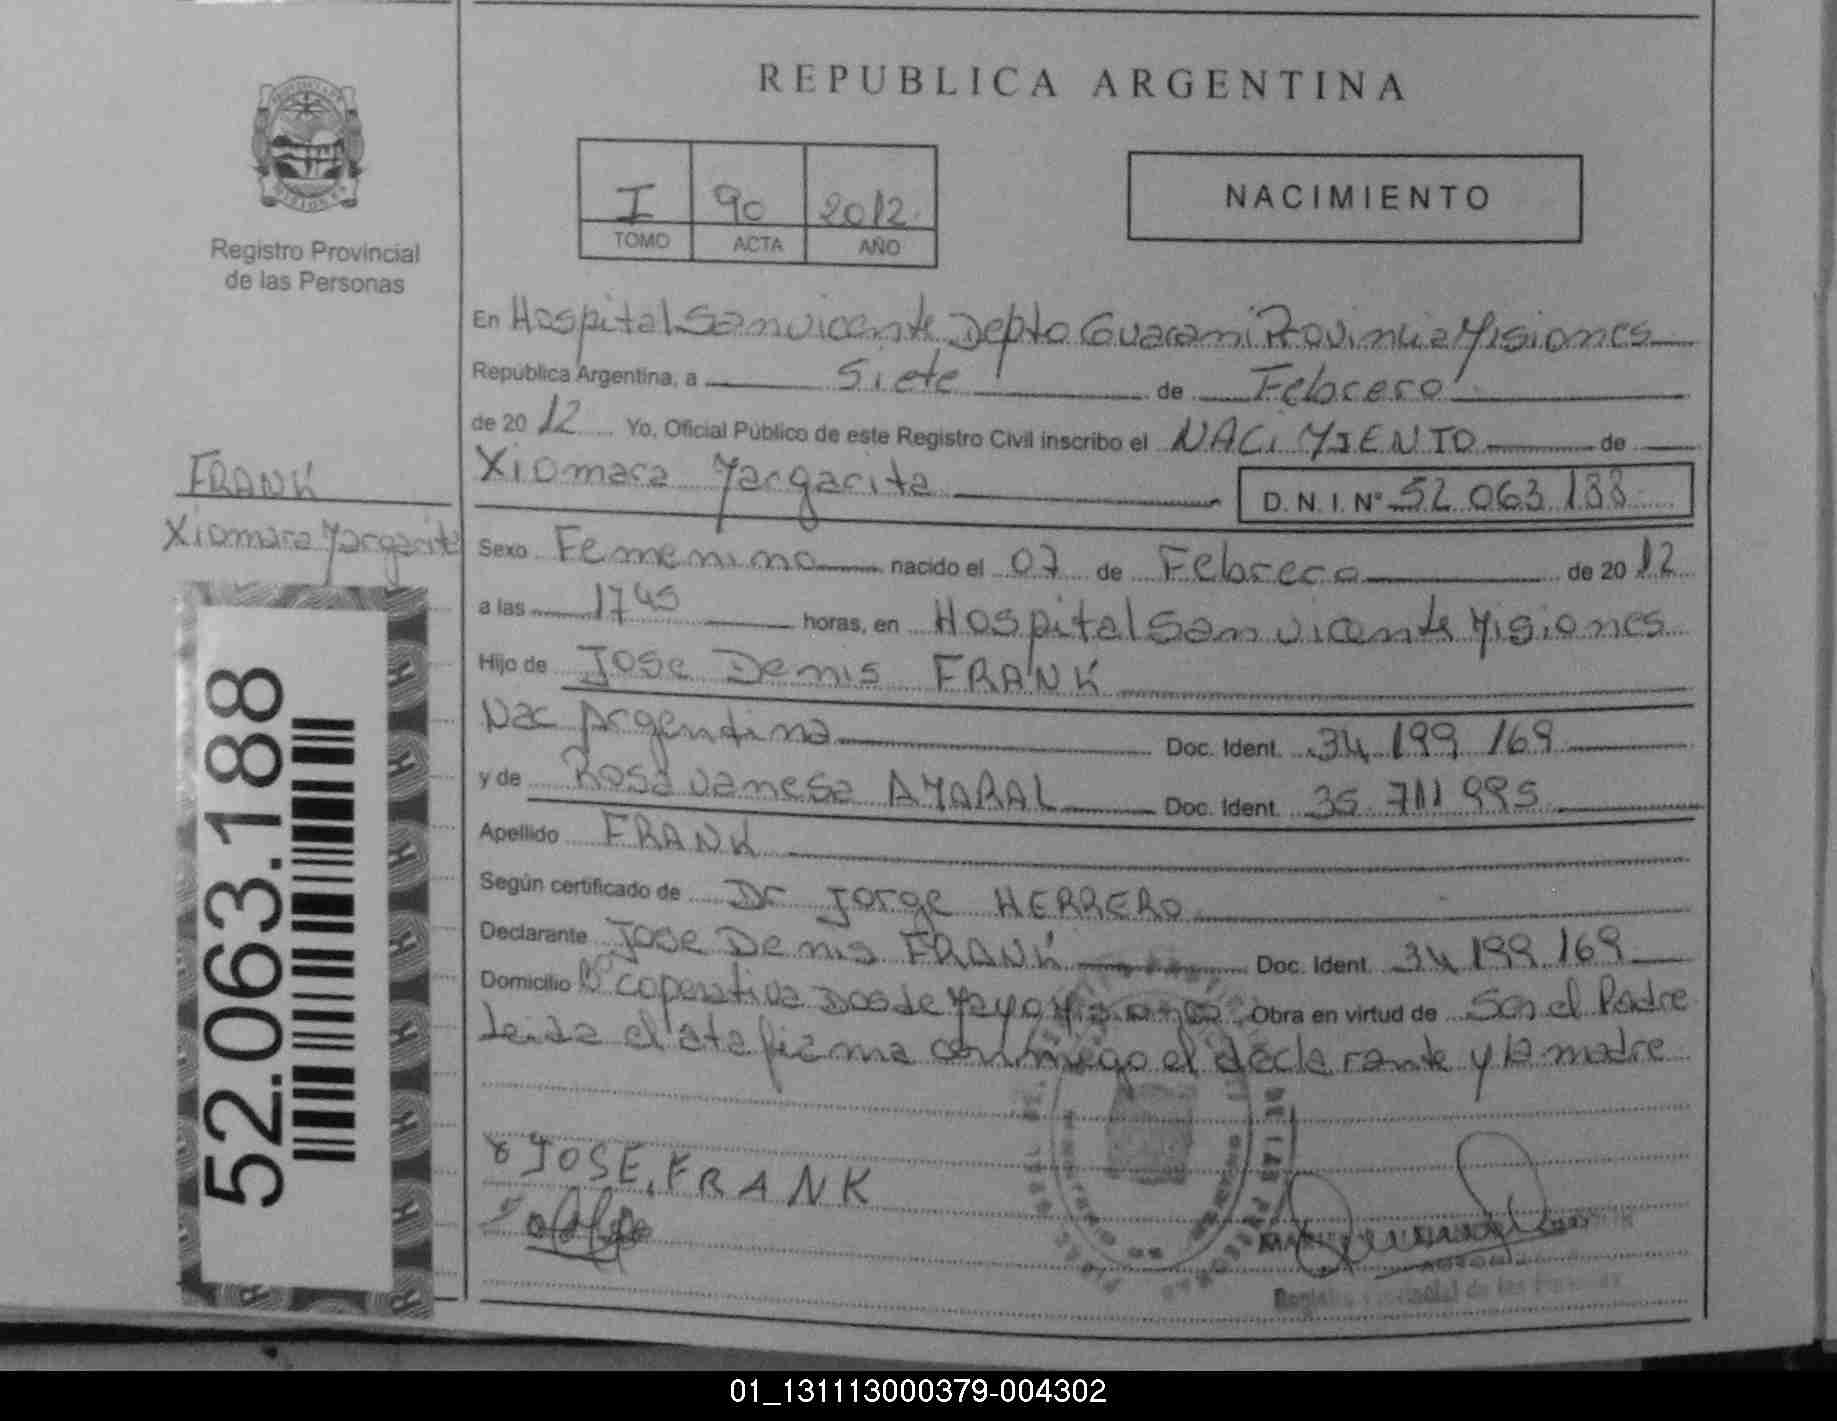 REPUBLICA ARGENTINA
I 90 2012
TOMO ACTA AÑO
NACIMIENTO
Registro Provincial
de las Personas
En Hospital San vicente Depto Guarani Provincia Misiones
República Argentina, a Siete de Febrero
de 2012 Yo, Oficial Público de este Registro Civil inscribo el NACIMIENTO de
Xiomara Margarita D. N. I. Nº 52.063.188
FRANK
Xiomara Margarita
Sexo Femenino nacido el 07 de Febrero de 2012
a las 1745 horas, en Hospital San vicente Misiones
Hijo de Jose Denis FRANK
Nac Argentina Doc. Ident. 34 199 169
y de Rosa vanesa AMARAL Doc. Ident. 35 711 995
Apellido FRANK
Según certificado de Dr Jorge HERRERO
Declarante Jose Denis FRANK Doc. Ident. 34 199 169
Domicilio Bº coperativa Dos de Mayo Misiones Obra en virtud de Ser el Padre
Leida el ata firma conmigo el declarante y la madre
JOSE, FRANK
52.063.188
Provincial de las
01_131113000379-004302